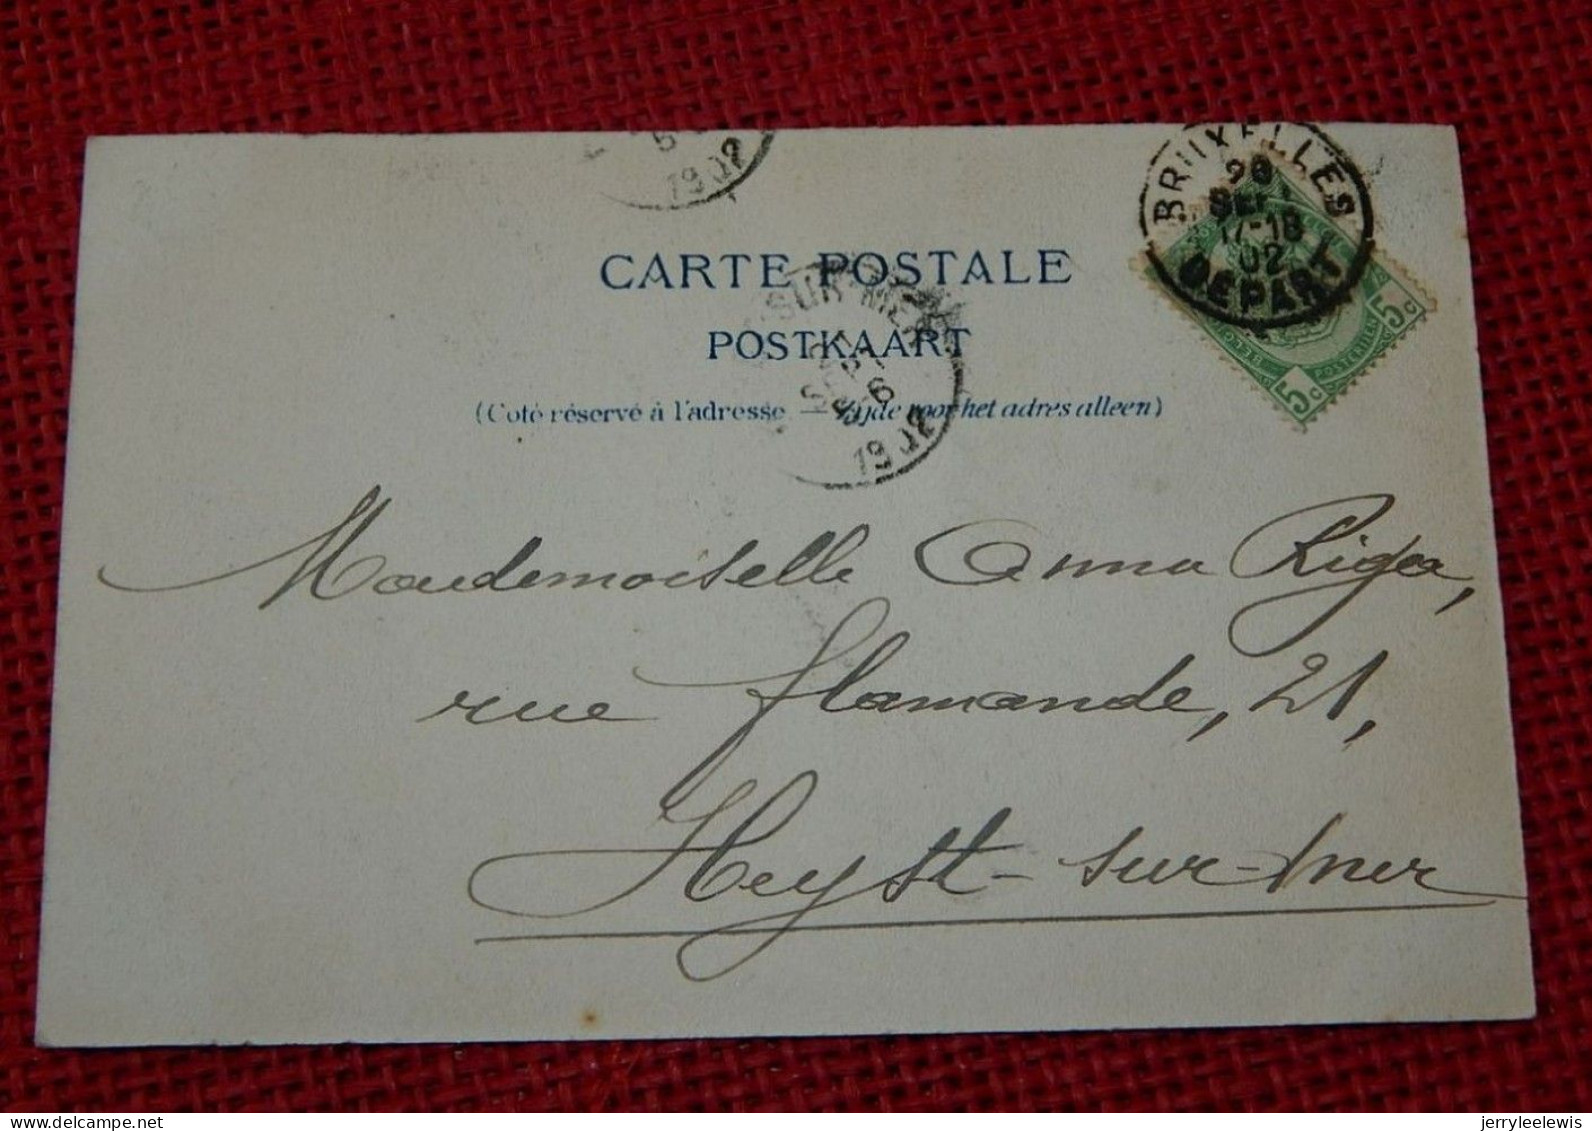 1902
BRUXELLES
17-18
02
DEPART
CARTE POSTALE
SUR-MER
POSTKAART
(Coté réservé à l'adresse — Zijde voor het adres alleen)
1902
5c
5c
Mademoiselle Anna Riga,
rue flamande, 21,
Heyst-sur-mer
delcampe.net
jerryleelewis